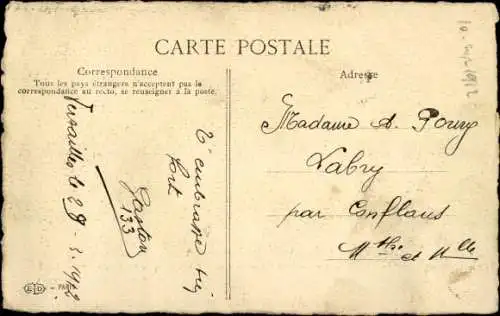 CARTE POSTALE
Correspondance
Tous les pays étrangers n'acceptent pas la
correspondance au recto, se renseigner à la poste.
Adresse
Versailles le 28
T'embrasse très
fort
Gaston
133
Madame A. Poury
Labry
par Conflans
Mthe et Mlle
ELD - PARIS